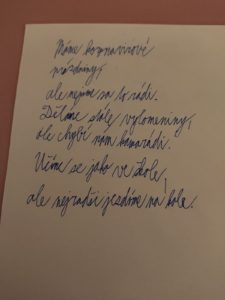 Máme koronavirové
prázdniny,
ale nejsme za to rádi.
Děláme stále vylomeniny,
ale chybí nám kamarádi.
Učíme se jako ve škole,
ale nejradši jezdíme na kole.